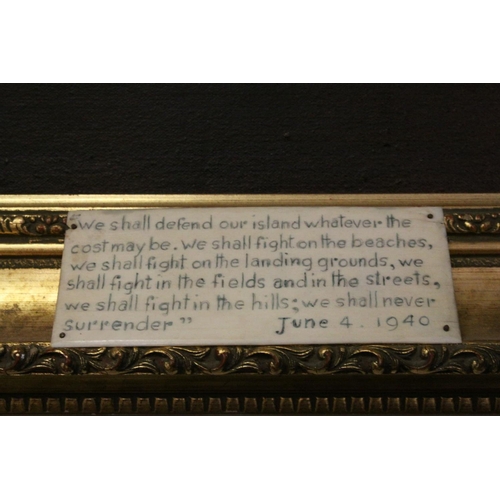 "We shall defend our island whatever the
cost may be. We shall fight on the beaches,
we shall fight on the landing grounds, we
shall fight in the fields and in the streets,
we shall fight in the hills; we shall never
surrender" June 4. 1940